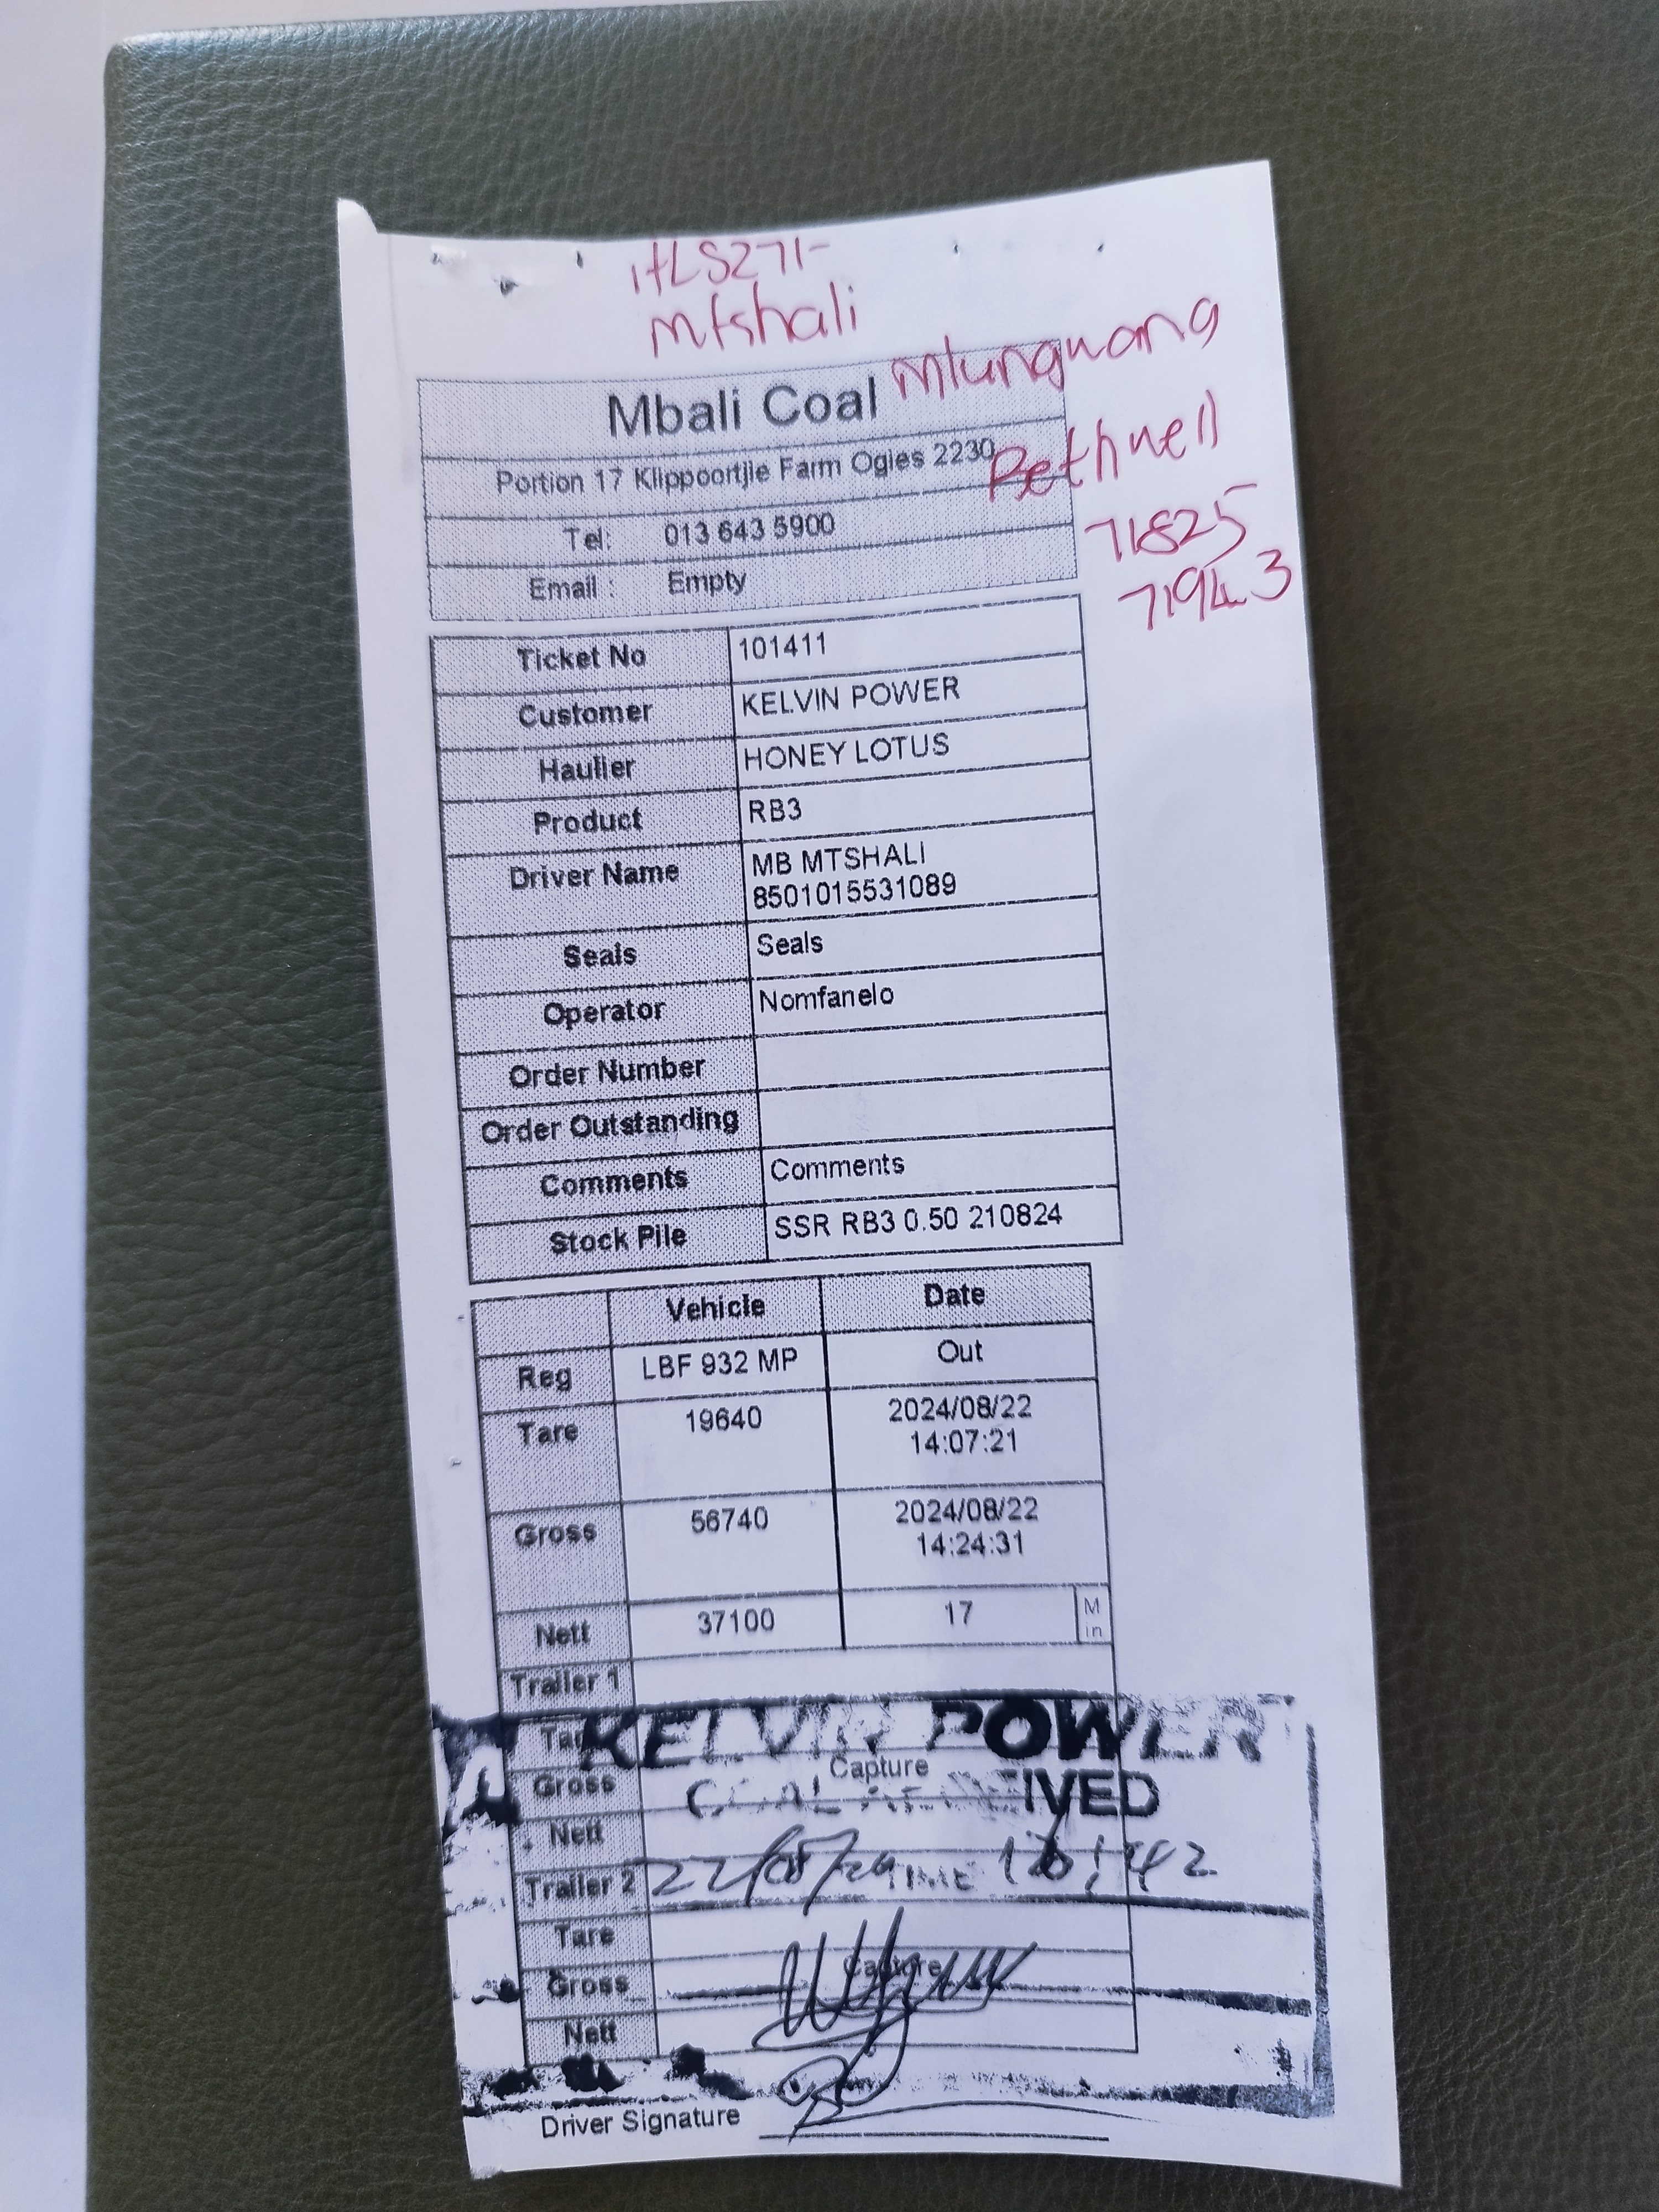 HLS271-
Mtshali
Mlungwana
Bethwell
71825
71943
Mbali Coal
Portion 17 Klippoortjie Farm Ogies 2230
Tel: 013 643 5900
Email : Empty
Ticket No 101411
Customer KELVIN POWER
Haulier HONEY LOTUS
Product RB3
Driver Name MB MTSHALI
8501015531089
Seals Seals
Operator Nomfanelo
Order Number
Order Outstanding
Comments Comments
Stock Pile SSR RB3 0.50 210824
Vehicle Date
Reg LBF 932 MP Out
Tare 19640 2024/08/22
14:07:21
Gross 56740 2024/08/22
14:24:31
Nett 37100 17 Min
Trailer 1
Tare
KELVIN POWER
Capture
Gross
COAL RECEIVED
Nett
Trailer 2 22/08/24
Tare
Gross Capture
Nett
Driver Signature